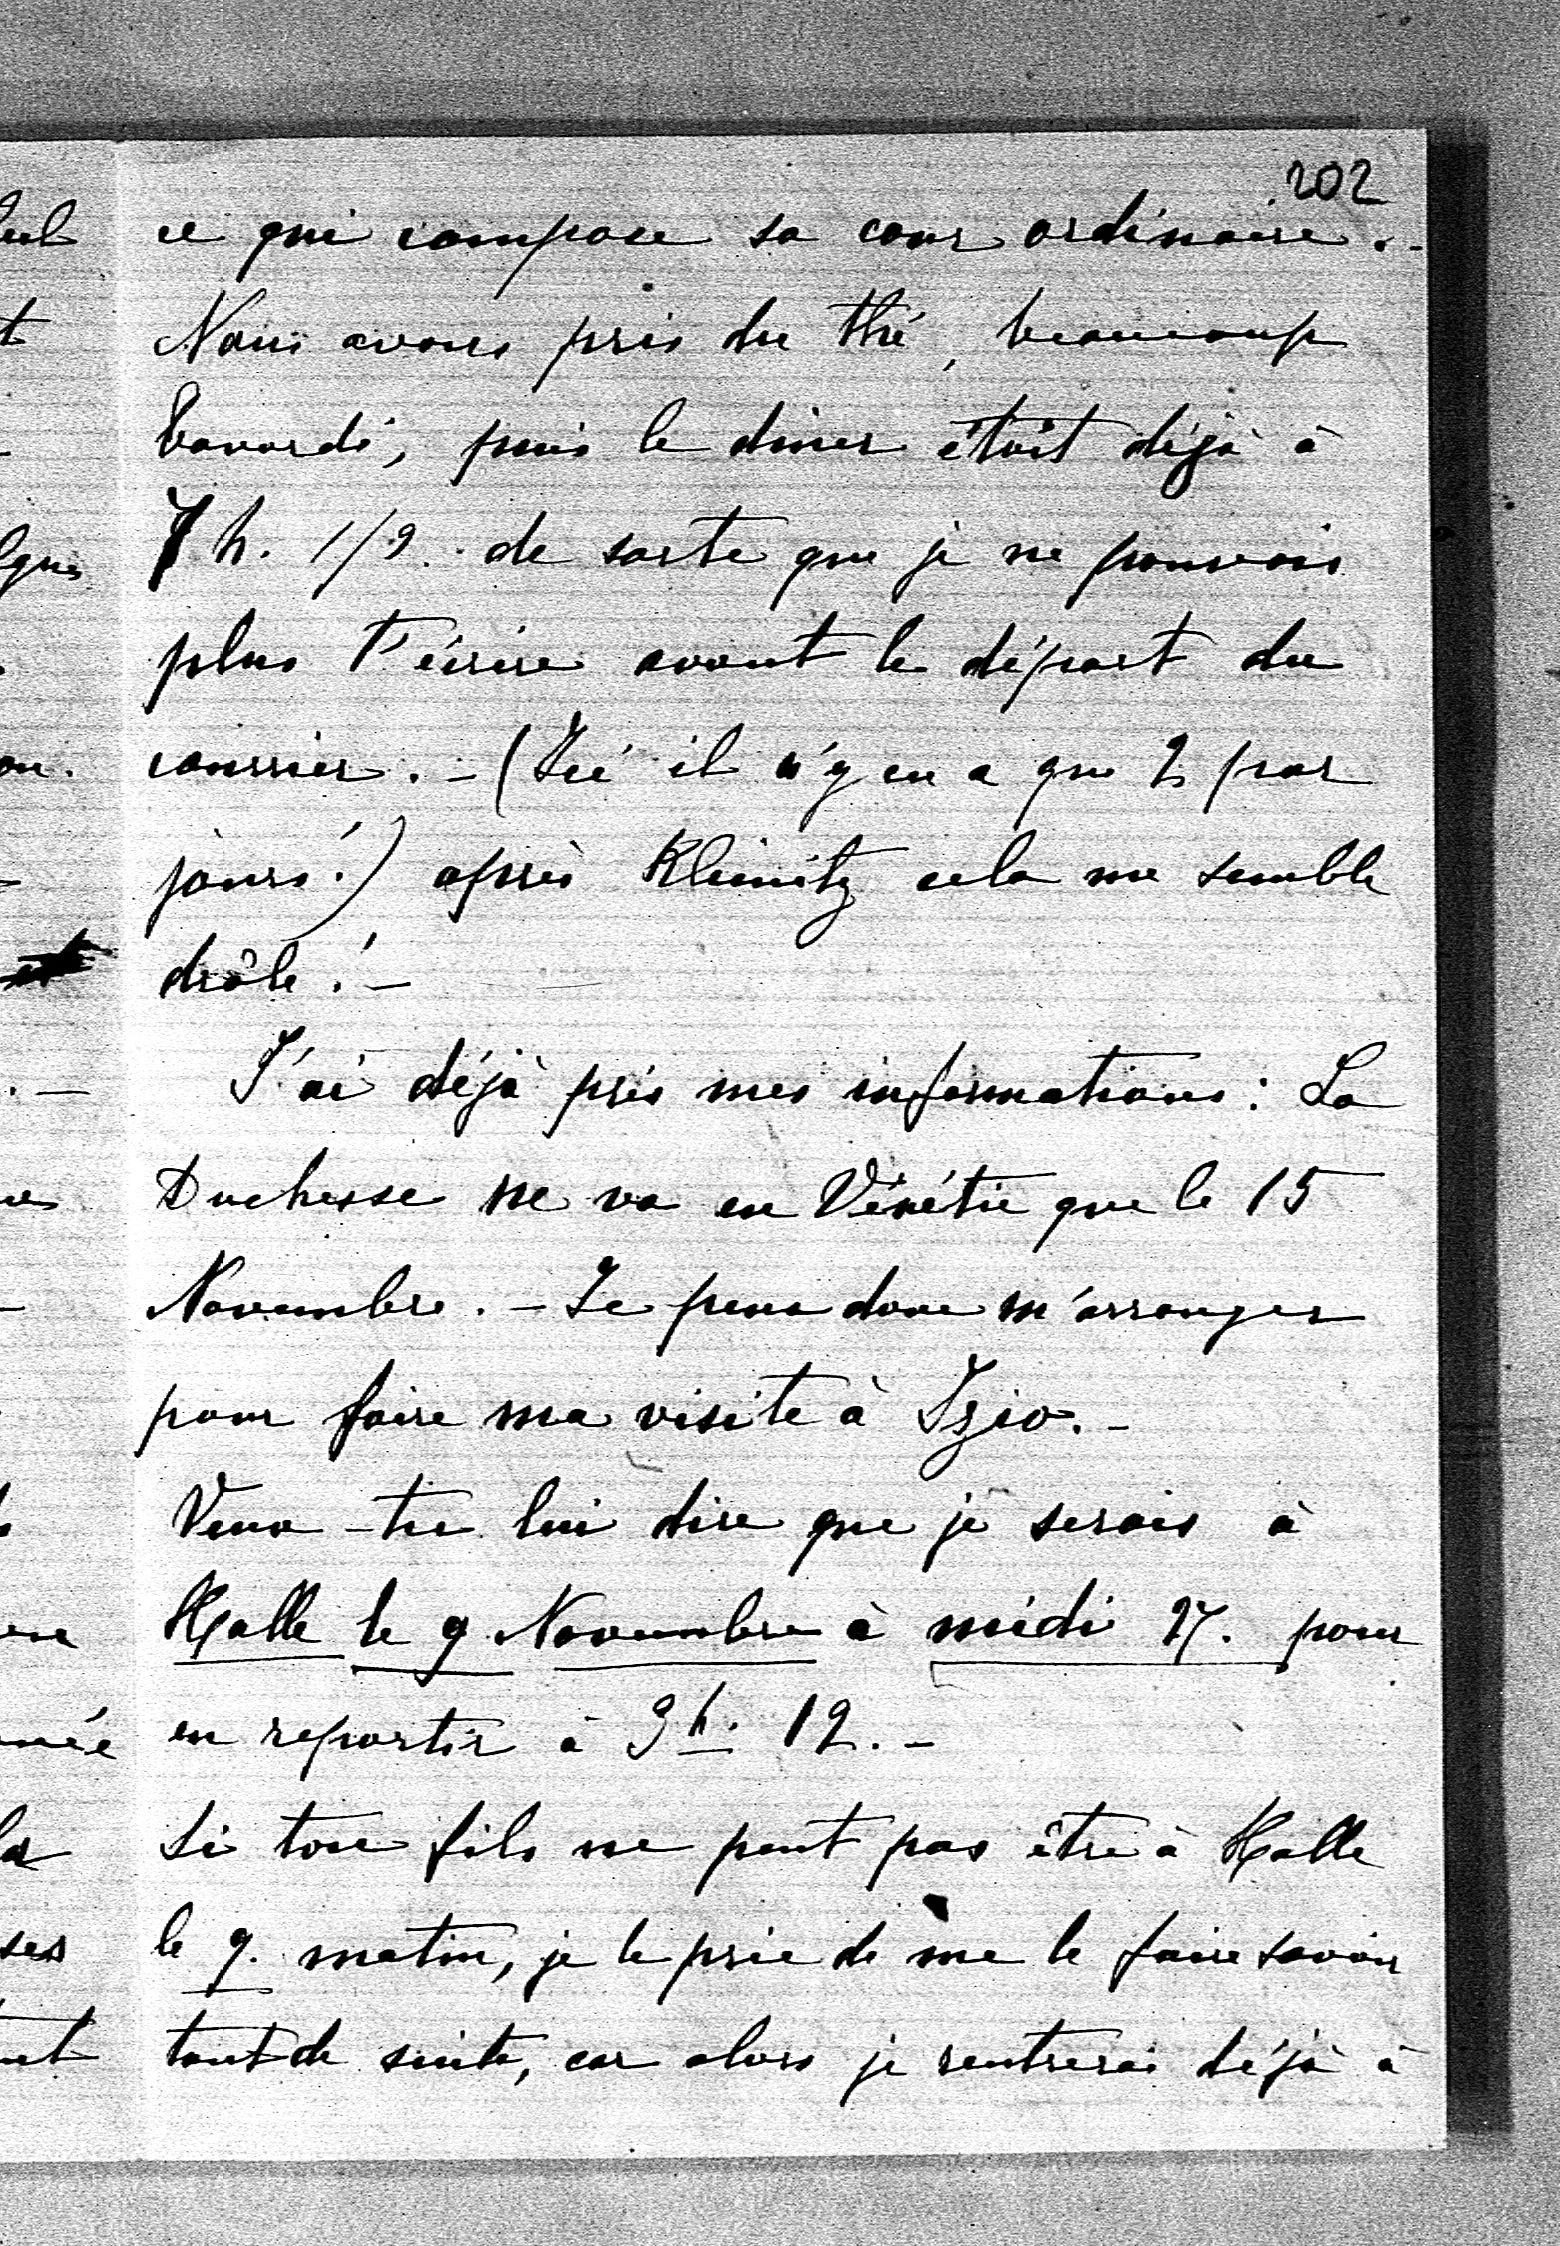 202
ce qui compose sa cour ordinaire. -
Nous avons pris du thé, beaucoup
bavardé, puis le diner étoit déjà à
7 h. 1/2. de sorte que je ne pouvais
plus t'écrire avant le départ du
courrier. - (Ici il n'y en a que 2 par
jours!) après Klienitz cela me semble
drôle! -
J'ai déjà pris mes informations: La
Duchesse ne va en Vénétie que le 15
Novembre. - Je peux donc m'arranger
pour faire ma visite à Izio. -
Veux-tu lui dire que je serais à
Halle le 9 Novembre à midi 27. pour
en repartir à 3h. 12. -
Si ton fils ne peut pas être à Halle
le 9. matin, je le prie de me le faire savoir
tout de suite, car alors je rentrerai déjà à